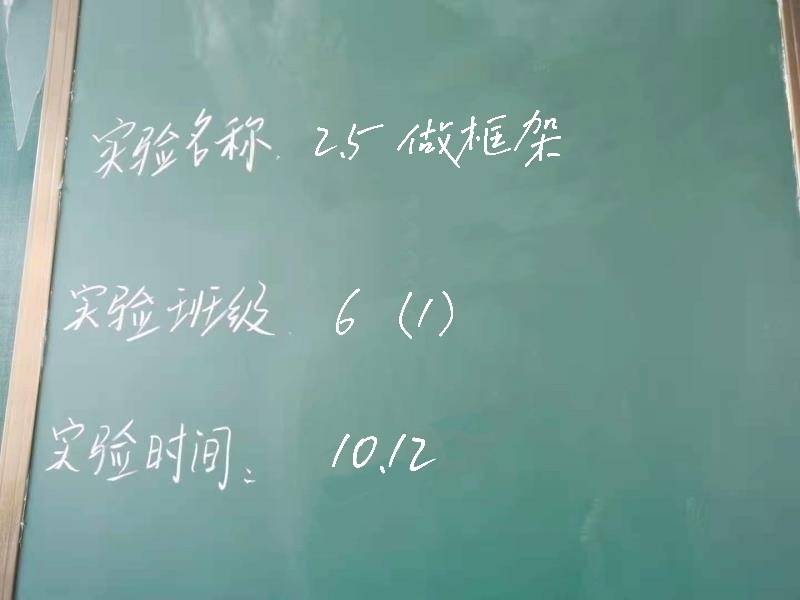 实验名称. 2.5 做框架
实验班级. 6 (1)
实验时间: 10.12